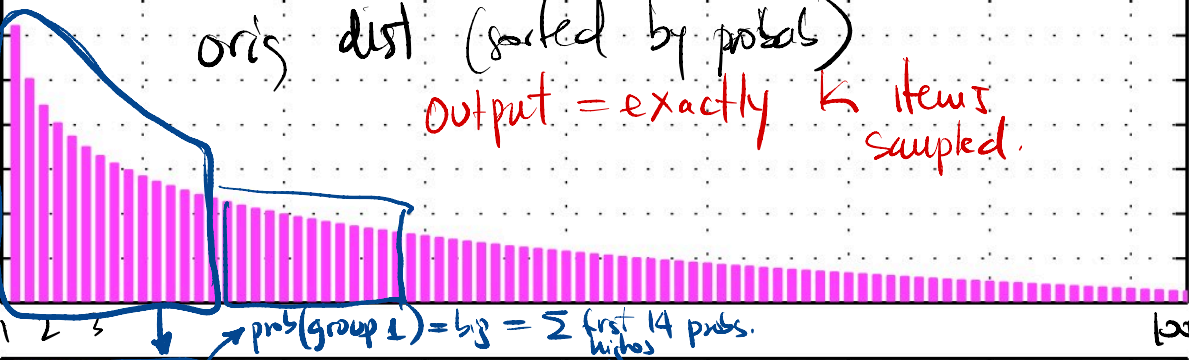 orig dist (sorted by probab)
output = exactly K items
sampled.
1 2 3
prob(group 1) = big = Σ first 14 probs.
highes